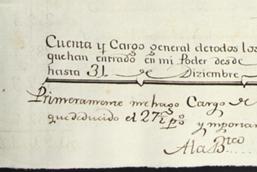 Cuenta y Cargo general de todos los
que han entrado en mi Poder desde
hasta 31 de Diziembre
Primeramente me hago Cargo de
que deducido el 27 y ymportan
A la B.